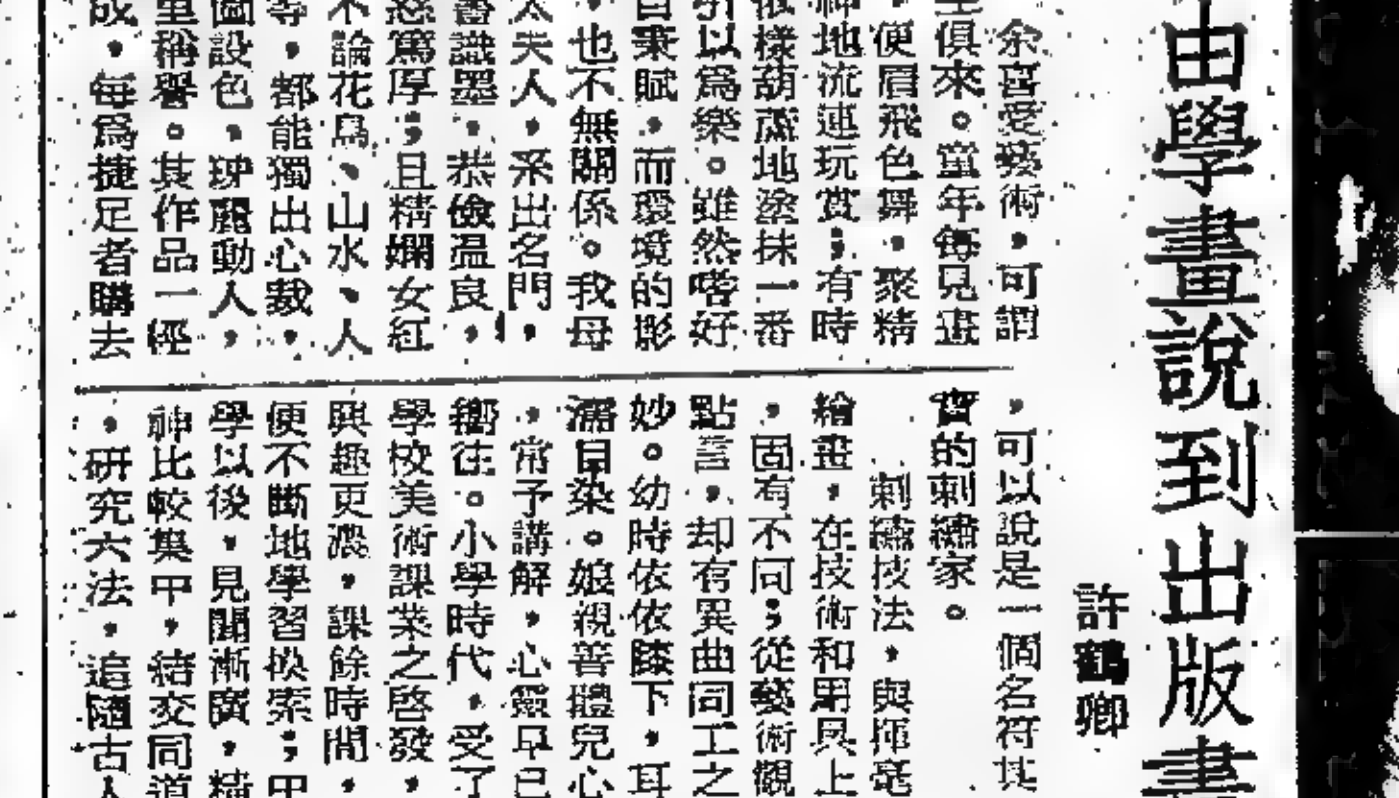 由學畫說到出版畫
許鶴卿
余喜愛藝術，可謂
俱來。童年每見畫
，便眉飛色舞，聚精
神地流連玩賞；有時
依樣葫蘆地塗抹一番
引以為樂。雖然嗜好
自秉賦，而環境的影
，也不無關係。我母
太夫人，系出名門，
書識墨，恭儉温良，
慈篤厚；且精嫻女紅
不論花鳥、山水、人
等，都能獨出心裁，
圖設色，動人，
重稱譽。其作品一經
成，每為捷足者購去
，可以說是一個名符其
實的刺繡家。
刺繡技法，與揮毫
繪畫，在技術和用具上
，固有不同；從藝術觀
點言，却有異曲同工之
妙。幼時依依膝下，耳
濡目染。娘親善體兒心
，常予講解，心靈早已
嚮往。小學時代，受了
學校美術課業之啓發，
興趣更濃，課餘時間，
便不斷地學習摸索；中
學以後，見聞漸廣，精
神比較集中，結交同道
，研究六法，追隨古人